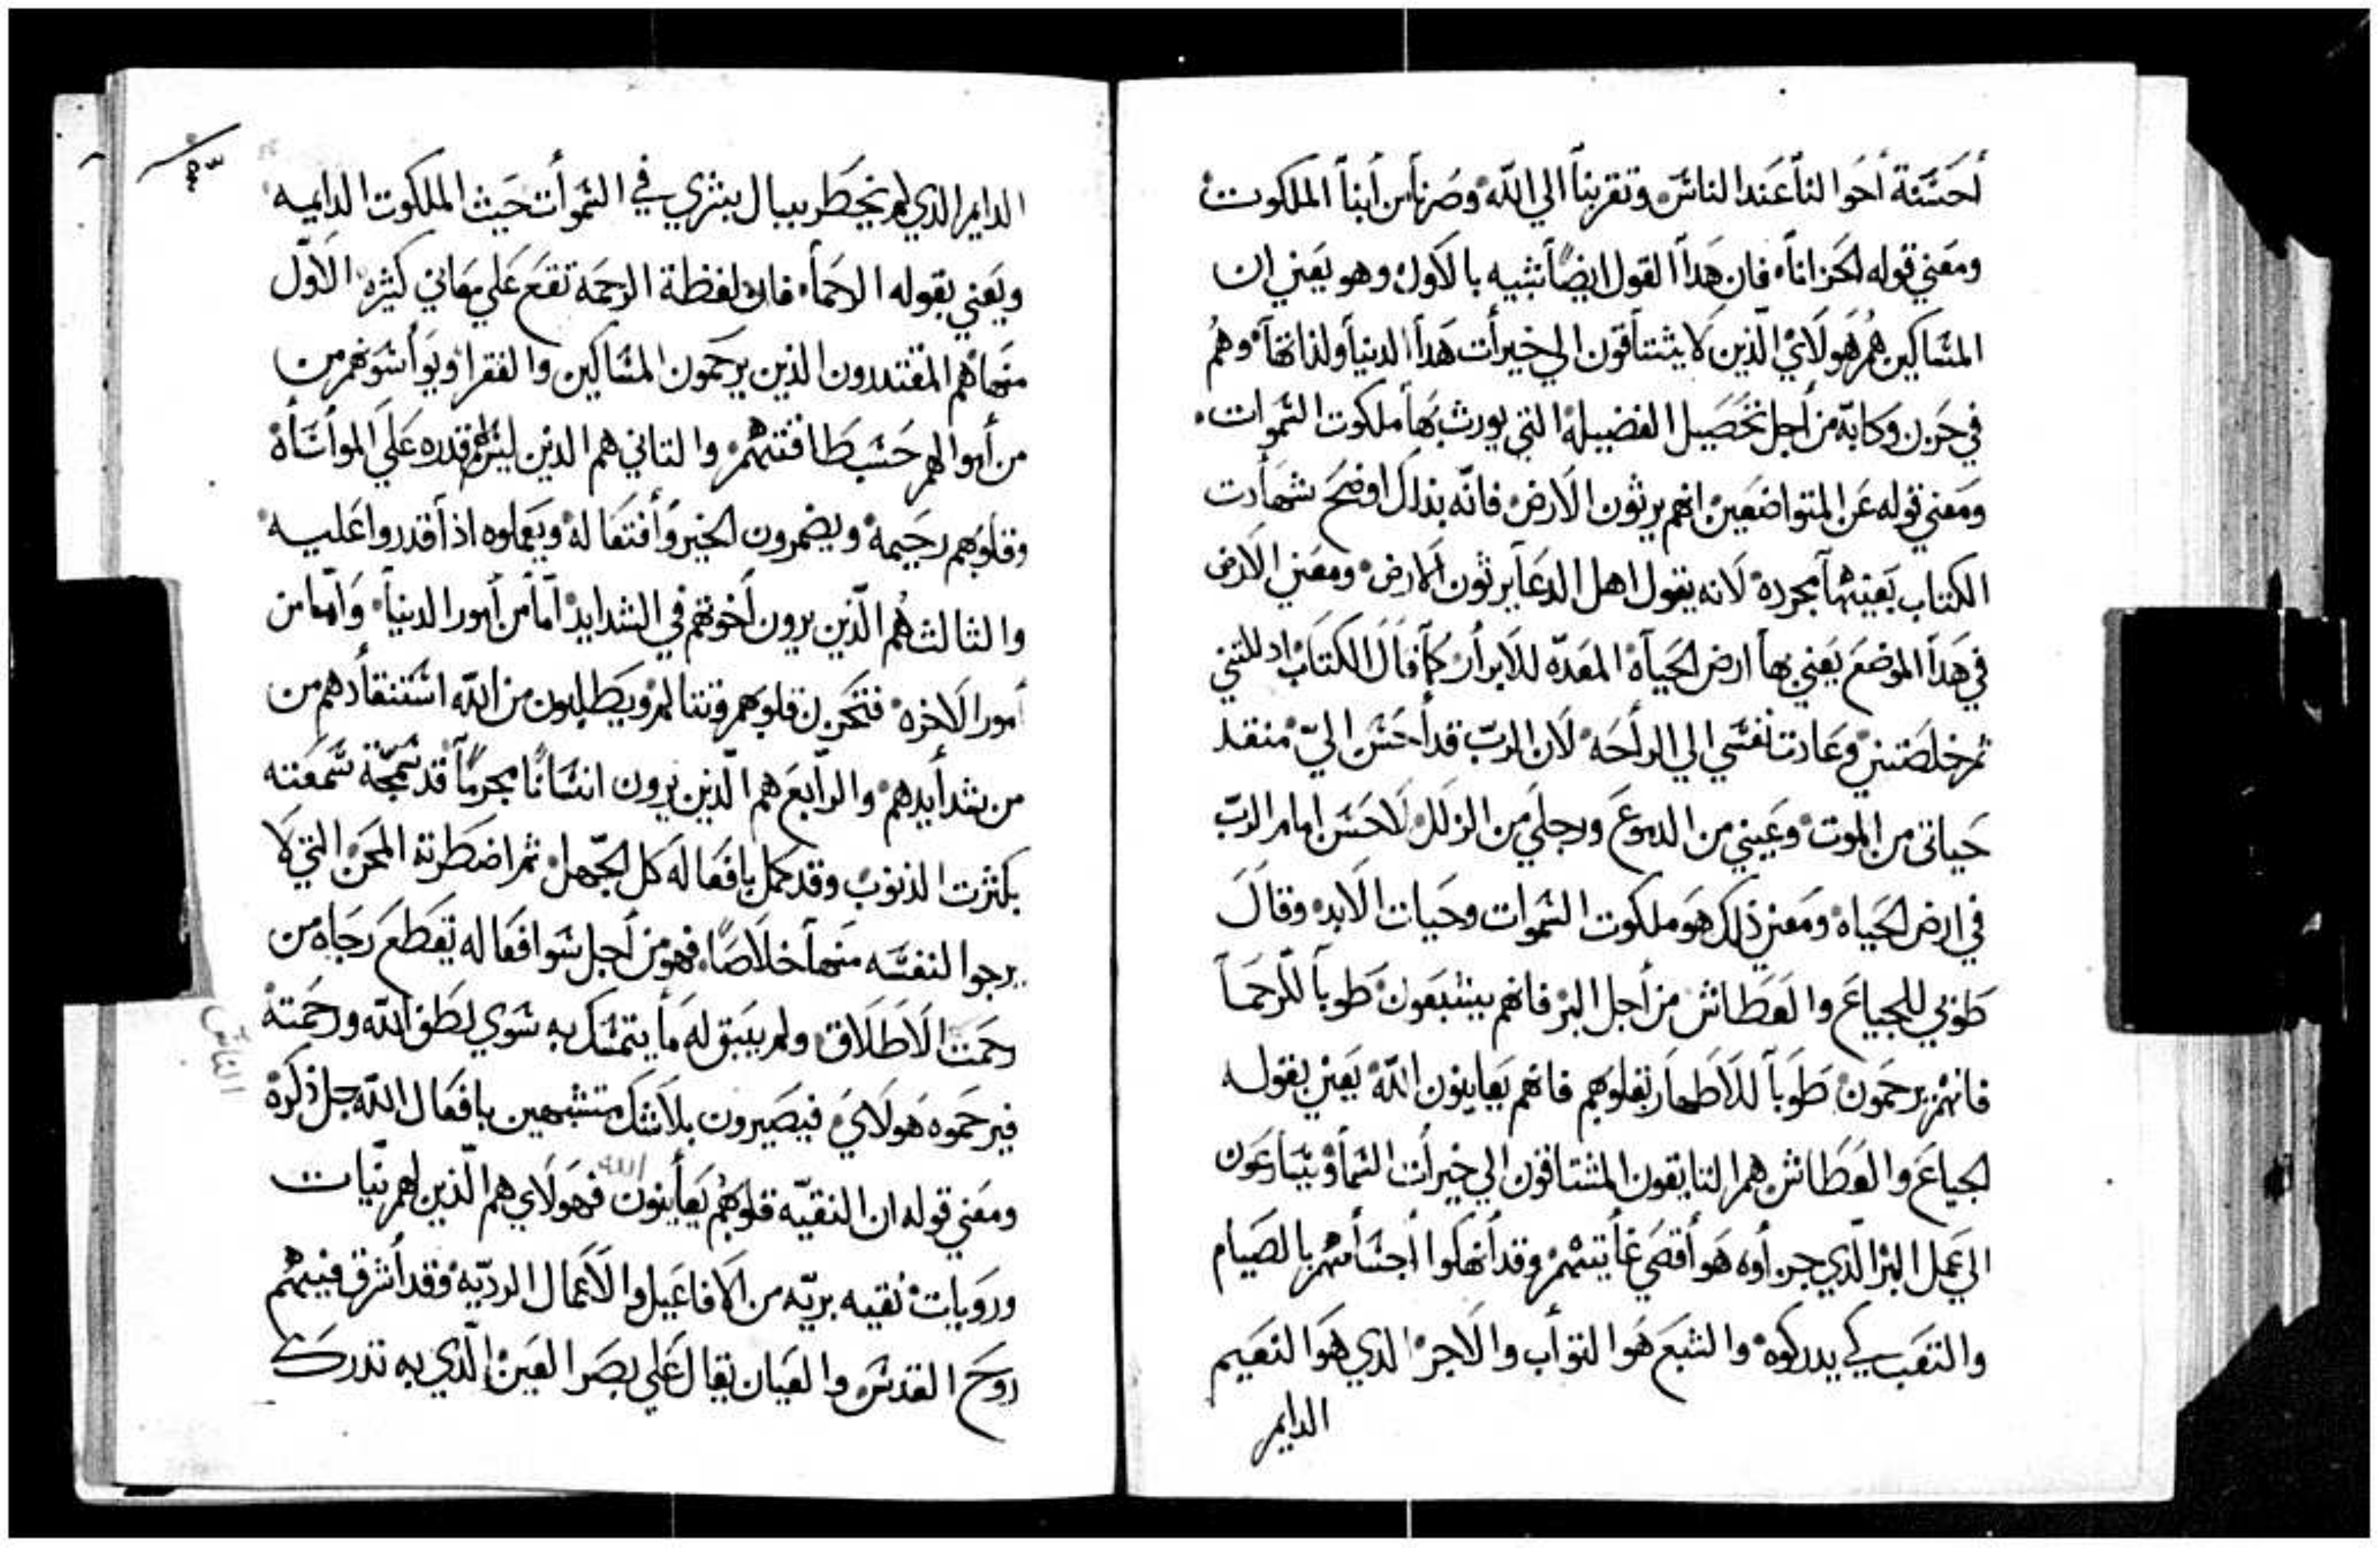 أحسنة أحوالنا عند الناس وتقربنا الي الله وصرنا من أبنا الملكوت
ومعني قوله الحزانا فان هدا القول ايضا شبيه بالاول وهو يعني ان
المساكين هم هولاي الذين لا يشتاقون الي خيرات هدا الدنيا ولذاتها وهم
في حزن وكابه من أجل تحصيل الفضيله التي يورث بها ملكوت السموات
ومعني قوله عن المتواضعين انهم يرثون الارض فانه بذلك اوضح شهادت
الكتاب بعينها مجرده لانه يقول اهل الدعا يرثون الارض ومعني الارض
في هدا الموضع يعني بها ارض الحياة المعده للابرار كما قال الكتاب اد للتني
ثم خلصتني وعادت نفسي الي الراحه لان الرب قد أحسن الي منقد
حياتى من الموت وعيني من الدموع ورجلي من الزلل لاحسن امام الرب
في ارض الحياه ومعني ذلك هو ملكوت السموات وحيات الابد وقال
طوبي للجياع والعطاش من أجل البر فانهم يشبعون طوبا للرحما
فانهم يرحمون طوبا للاطهار بقلوبهم فانهم يعاينون الله يعني بقوله
الجياع والعطاش هم التايقون المشتاقون الي خيرات السما ويسارعون
الي عمل البر الذي جزاوه هو أقصي غايتهم وقد أنهكوا أجسامهم بالصيام
والتعب كي يدركوه والشبع هو التواب والاجر الدي هو النعيم
الدايم
الدايم الدي لم يخطر ببال بشري في السموات حيث الملكوت الدايمه
ويعني بقوله الرحما فان لفظة الرحمة تقع علي معاني كثيره الاول
منها هم المقتدرون الذين يرحمون المساكين والفقرا ويواسوهم من
من أموالهم حسب طاقتهم والتاني هم الدين ليس لهم قدره علي المواساة
وقلوبهم رحيمة ويضمرون الخير وأفتعاله ويعملوه اذا قدروا عليه
والثالث هم الذين يرون أخوتهم في الشدايد أما من أمور الدنيا وأما من
أمور الاخره فتحزن قلوبهم وتتالم ويطلبون من الله استنقادهم من
من شدايدهم والرابع هم الذين يرون انسانا مجرما قد سمجة سمعته
بكثرت الذنوب وقد كمل بافعاله كل الجهل ثم اضطرته المحن التي لا
يرجوا لنفسه منها خلاصا فهو من أجل سوا فعاله يقطع رجاه من
رحمت الاطلاق ولم يبق له ما يتمسك به سوي لطف الله ورحمته
الناس
فيرحموه هولاي فيصيرون بلا شك متشبهين بافعال الله جل ذكره
ومعني قوله ان النقيه قلوبهم يعاينون الله فهولاي هم الذين لهم نيات
ورويات نقيه بريه من الافاعيل والاعمال الرديه وقد أشرق فيهم
روح القدس والعيان يقال علي بصر العين الذي به تدرك